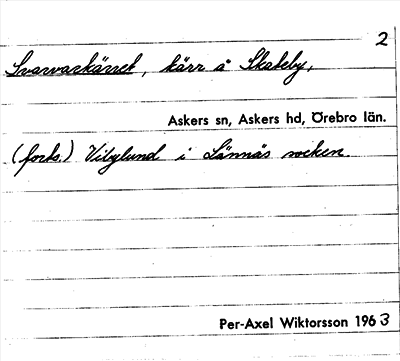 2
Svarvarkärret, kärr å Skakeby,
Askers sn, Askers hd, Örebro län.
(forts.) Vibylund i Lännäs socken.
Per-Axel Wiktorsson 1963